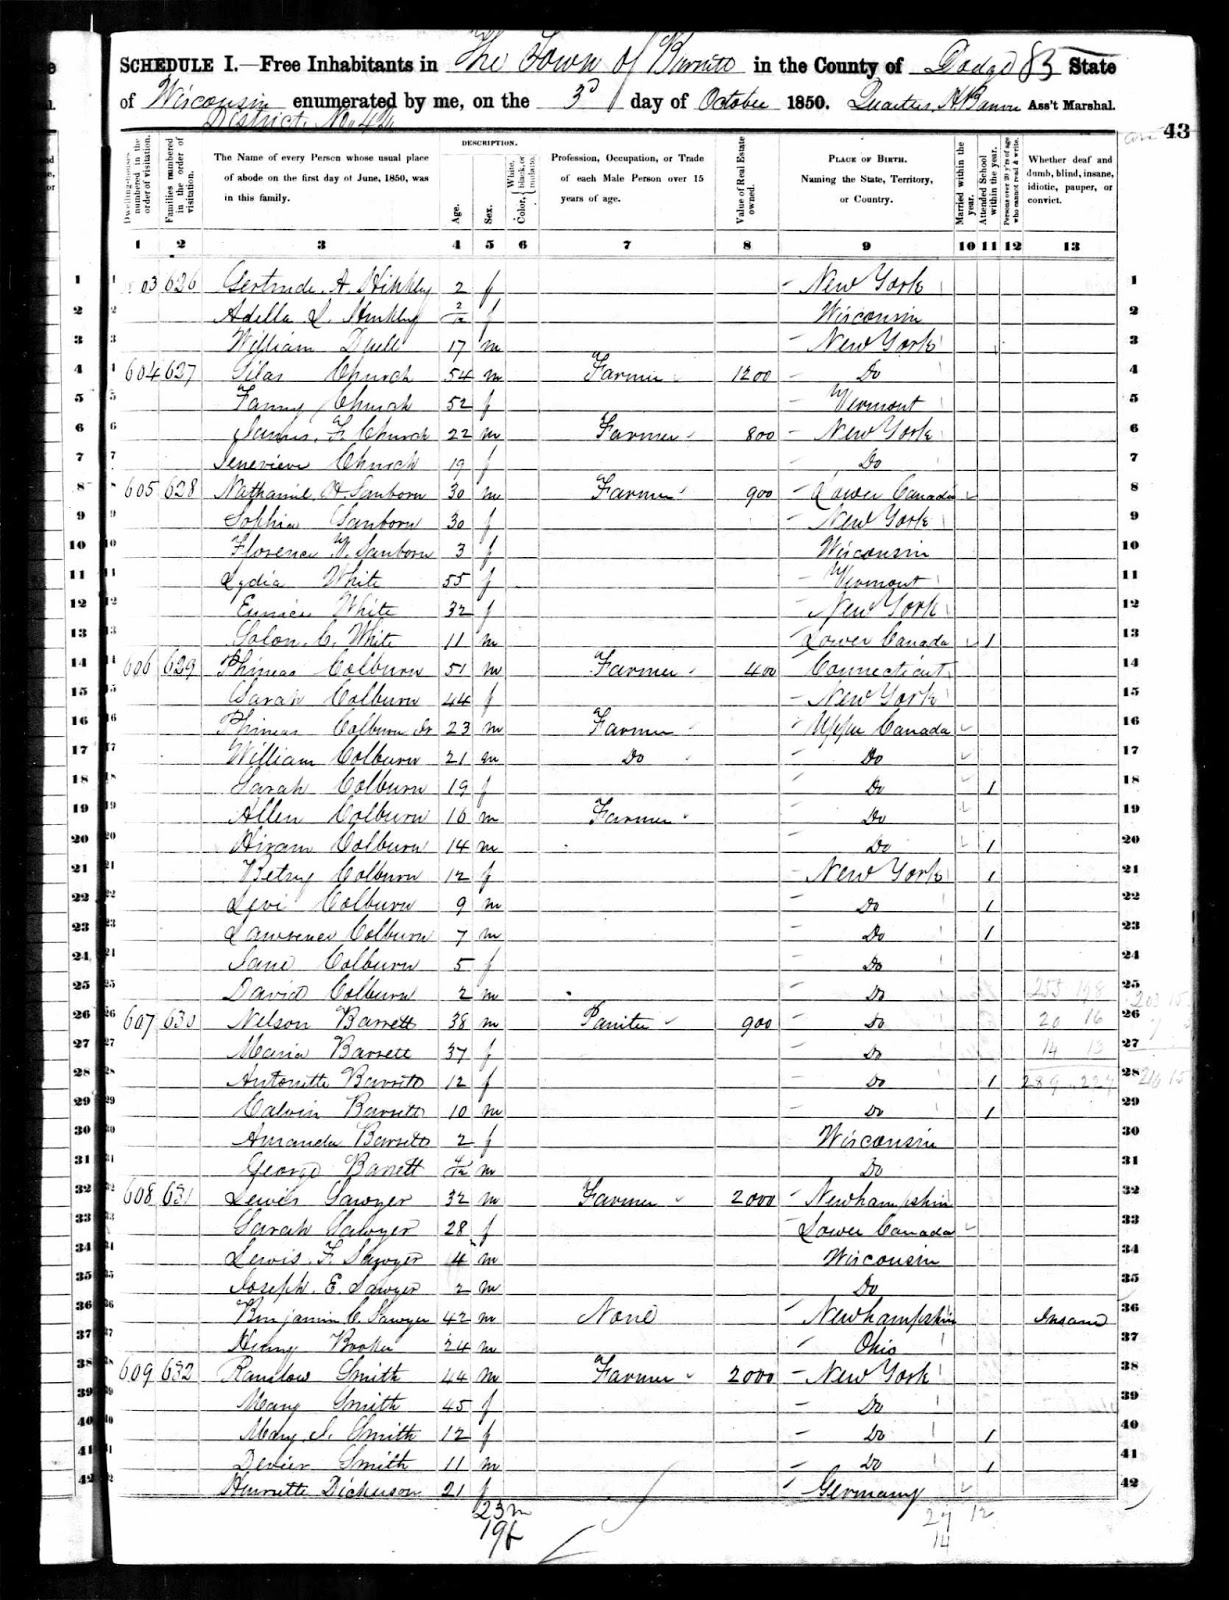 SCHEDULE I.—Free Inhabitants in The Town of Burnett in the County of Dodge 83 State
of Wisconsin enumerated by me, on the 3d day of October 1850. Ass't Marshal.
District No. 43
DESCRIPTION.
Dwelling-houses numbered in the order of visitation.
Families numbered in the order of visitation.
The Name of every Person whose usual place of abode on the first day of June, 1850, was in this family.
Age.
Sex.
Color, { White, black, or mulatto.
Profession, Occupation, or Trade of each Male Person over 15 years of age.
Value of Real Estate owned.
PLACE OF BIRTH. Naming the State, Territory, or Country.
Married within the year.
Attended School within the year.
Persons over 20 y'rs of age who cannot read & write.
Whether deaf and dumb, blind, insane, idiotic, pauper, or convict.
1 2 3 4 5 6 7 8 9 10 11 12 13
1 603 626 Gertrude A. Hinkley 2 f New York 1
2 Adella L. Hinkley 2/12 f Wisconsin 2
3 William Duell 17 m New York 3
4 604 627 Silas Church 54 m Farmer 1200 Do 4
5 Fanny Church 52 f Vermont 5
6 James F. Church 22 m Farmer 800 New York 6
7 Genevieve Church 19 f Do 7
8 605 628 Nathaniel H. Sanborn 30 m Farmer 900 Lower Canada 8
9 Sophia Sanborn 30 f New York 9
10 Florence W. Sanborn 3 f Wisconsin 10
11 Lydia White 55 f Vermont 11
12 Eunice White 32 f New York 12
13 Solon C. White 11 m Lower Canada 1 13
14 606 629 Phineas Colburn 51 m Farmer 400 Connecticut 14
15 Sarah Colburn 44 f New York 15
16 Phineas Colburn Jr 23 m Farmer Upper Canada 16
17 William Colburn 21 m Do Do 17
18 Sarah Colburn 19 f Do 1 18
19 Allen Colburn 16 m Farmer Do 19
20 Hiram Colburn 14 m Do 1 20
21 Betsy Colburn 12 f New York 1 21
22 Levi Colburn 9 m Do 1 22
23 Lawrence Colburn 7 m Do 1 23
24 Jane Colburn 5 f Do 24
25 David Colburn 2 m Do 25
26 607 630 Nelson Barrett 38 m Painter 900 Do 26
27 Maria Barrett 37 f Do 27
28 Antonette Barrett 12 f Do 1 28
29 Calvin Barrett 10 m Do 1 29
30 Amanda Barrett 2 f Wisconsin 30
31 George Barrett m Do 31
32 608 631 Lewis Sawyer 32 m Farmer 2000 Newhampshire 32
33 Sarah Sawyer 28 f Lower Canada 33
34 Lewis F. Sawyer 4 m Wisconsin 34
35 Joseph E. Sawyer 2 m Do 35
36 Benjamin C. Sawyer 42 m None Newhampshire Insane 36
37 Henry 24 m Ohio 37
38 609 632 Ranslow Smith 44 m Farmer 2000 New York 38
39 Mary Smith 45 f Do 39
40 Mary Smith 12 f Do 1 40
41 Smith 11 m Do 1 41
42 Henriette Dickerson 21 f Germany 42
23m
19f
27 12
14
43